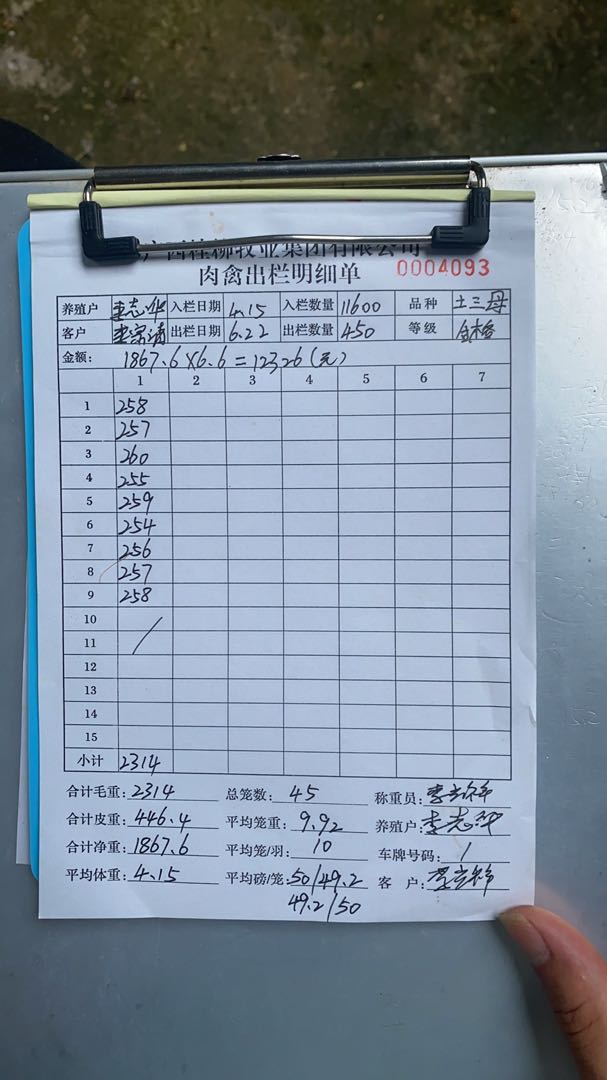 广西桂柳牧业集团有限公司
肉禽出栏明细单 0004093
养殖户 李志华 入栏日期 4.15 入栏数量 11600 品种 土三母
客户 出栏日期 6.22 出栏数量 450 等级 合格
金额: 1867.6×6.6=12326(元)
1 2 3 4 5 6 7
1 258
2 257
3 260
4 255
5 259
6 254
7 256
8 257
9 258
10
11
12
13
14
15
小计 2314
合计毛重: 2314 总笼数: 45 称重员:
合计皮重: 446.4 平均笼重: 9.92 养殖户: 李志华
合计净重: 1867.6 平均笼/羽: 10 车牌号码: 1
平均体重: 4.15 平均磅/笼: 50/49.2 客户:
49.2/50